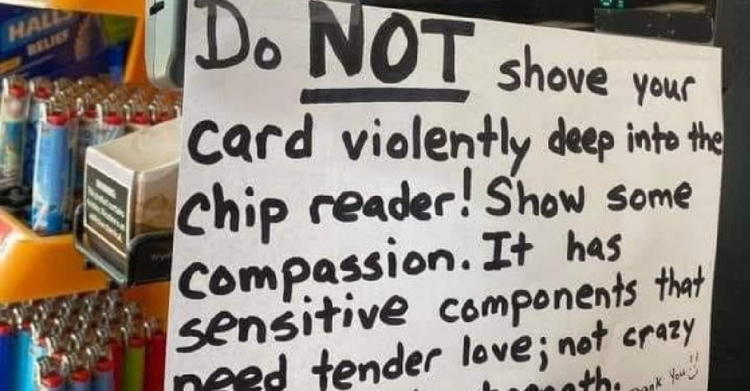 HALLS
RELIEF
Do NOT shove your
card violently deep into the
chip reader! Show some
compassion. It has
sensitive components that
need tender love; not crazy
Thank You :)